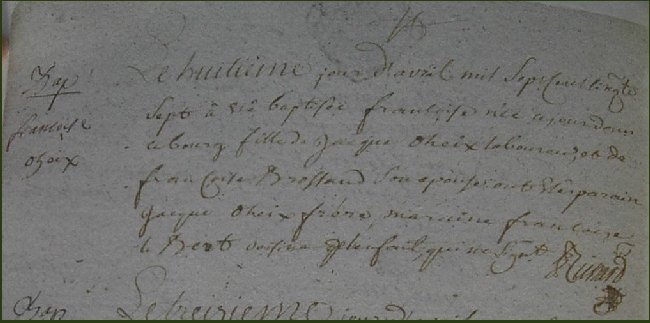 Bap
françoise
Choix
Le huitieme jour d'avril mil Sept Cent vingt
Sept a été baptisée françoise née ce jourd'hui dans
ce bourg fille de Jacque Choix laboureur, et de
françoise Brossaud Son épouse ont été parain
Jacque Choix frère, maraine françoise
le Bert voisine qui ne signent
Le treizieme jour d'avril
Bap